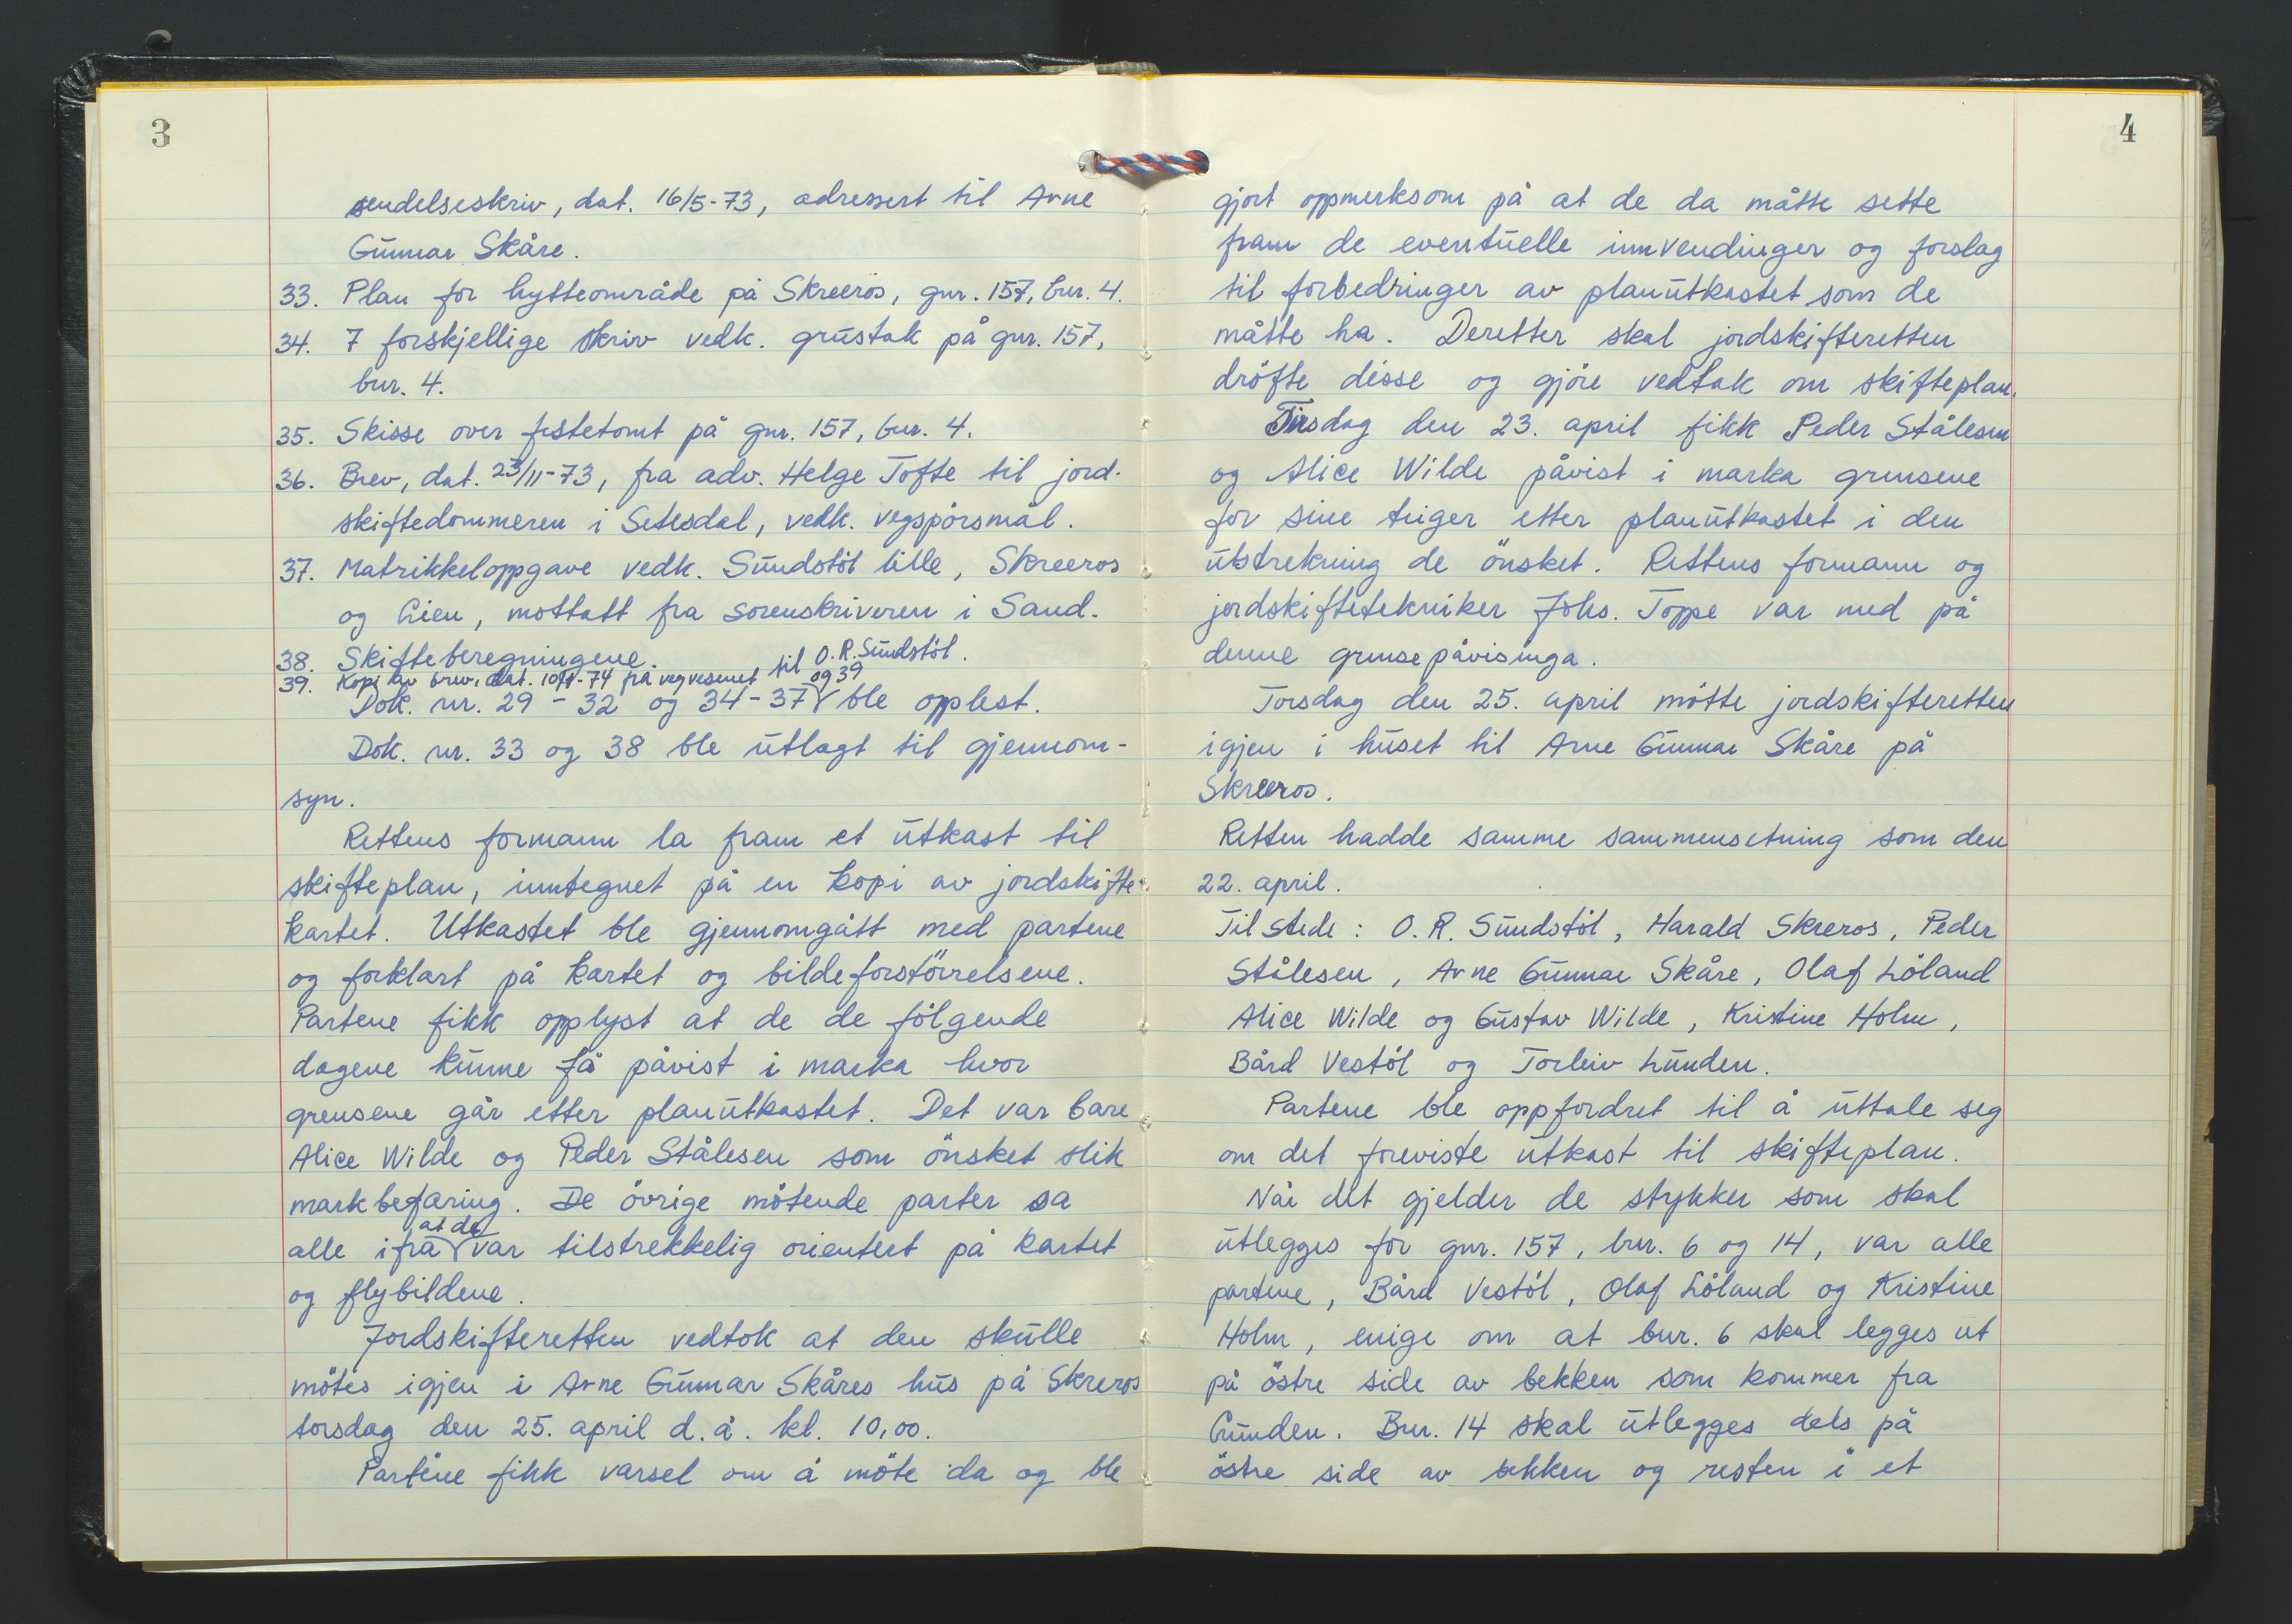 3
sendelseskriv, dat. 16/5-73, adressert til Arne
Gunnar Skåre.
33. Plan for hytteområde på Skreeros, gnr. 157, bnr. 4.
34. 7 forskjellige skriv vedk. grustak på gnr. 157,
bnr. 4.
35. Skisse over festetomt på gnr. 157, bnr. 4.
36. Brev, dat. 23/11-73, fra adv. Helge Tofte til jord-
skiftedommeren i Setesdal, vedk. vegspörsmål.
37. Matrikkeloppgave vedk. Sundstöl lille, Skreeros
og Lien, mottatt fra sorenskriveren i Sand.
38. Skifteberegningene.
39. Kopi av brev, dat. fra vegvesenet til O.R. Sundstöl.
Dok. nr. 29 - 32 og 34-37 og 39 ble opplest.
Dok. nr. 33 og 38 ble utlagt til gjennom-
syn.
Rettens formann la fram et utkast til
skifteplan, inntegnet på en kopi av jordskifte-
kartet. Utkastet ble gjennomgått med partene
og forklart på kartet og bildeforstörrelsene.
Partene fikk opplyst at de de fölgende
dagene kunne få påvist i marka hvor
grensene går etter planutkastet. Det var bare
Alice Wilde og Peder Stålesen som önsket slik
markbefaring. De övrige mötende parter sa
alle ifra at de var tilstrekkelig orientert på kartet
og flybildene.
Jordskifteretten vedtok at den skulle
mötes igjen i Arne Gunnar Skåres hus på Skreros
torsdag den 25. april d.å. kl. 10,00.
Partene fikk varsel om å möte da og ble
4
gjort oppmerksom på at de da måtte sette
fram de eventuelle innvendinger og forslag
til forbedringer av planutkastet som de
måtte ha. Deretter skal jordskifteretten
dröfte disse og gjöre vedtak om skifteplan.
Tirsdag den 23. april fikk Peder Stålesen
og Alice Wilde påvist i marka grensene
for sine teiger etter planutkastet i den
utstrekning de önsket. Rettens formann og
jordskiftetekniker Johs. Toppe var med på
denne grensepåvisinga.
Torsdag den 25. april mötte jordskifteretten
igjen i huset til Arne Gunnar Skåre på
Skreeros.
Retten hadde samme sammensetning som den
22. april.
Til stede: O. R. Sundstöl, Harald Skreros, Peder
Stålesen, Arne Gunnar Skåre, Olaf Löland
Alice Wilde og Gustav Wilde, Kristine Holm,
Bård Vestöl og Torleiv Lunden.
Partene ble oppfordret til å uttale seg
om det foreviste utkast til skifteplan.
Når det gjelder de stykker som skal
utlegges for gnr. 157, bnr. 6 og 14, var alle
partene, Bård Vestöl, Olaf Löland og Kristine
Holm, enige om at bnr. 6 skal legges ut
på östre side av bekken som kommer fra
Lunden. Bnr. 14 skal utlegges dels på
östre side av bekken og resten i et